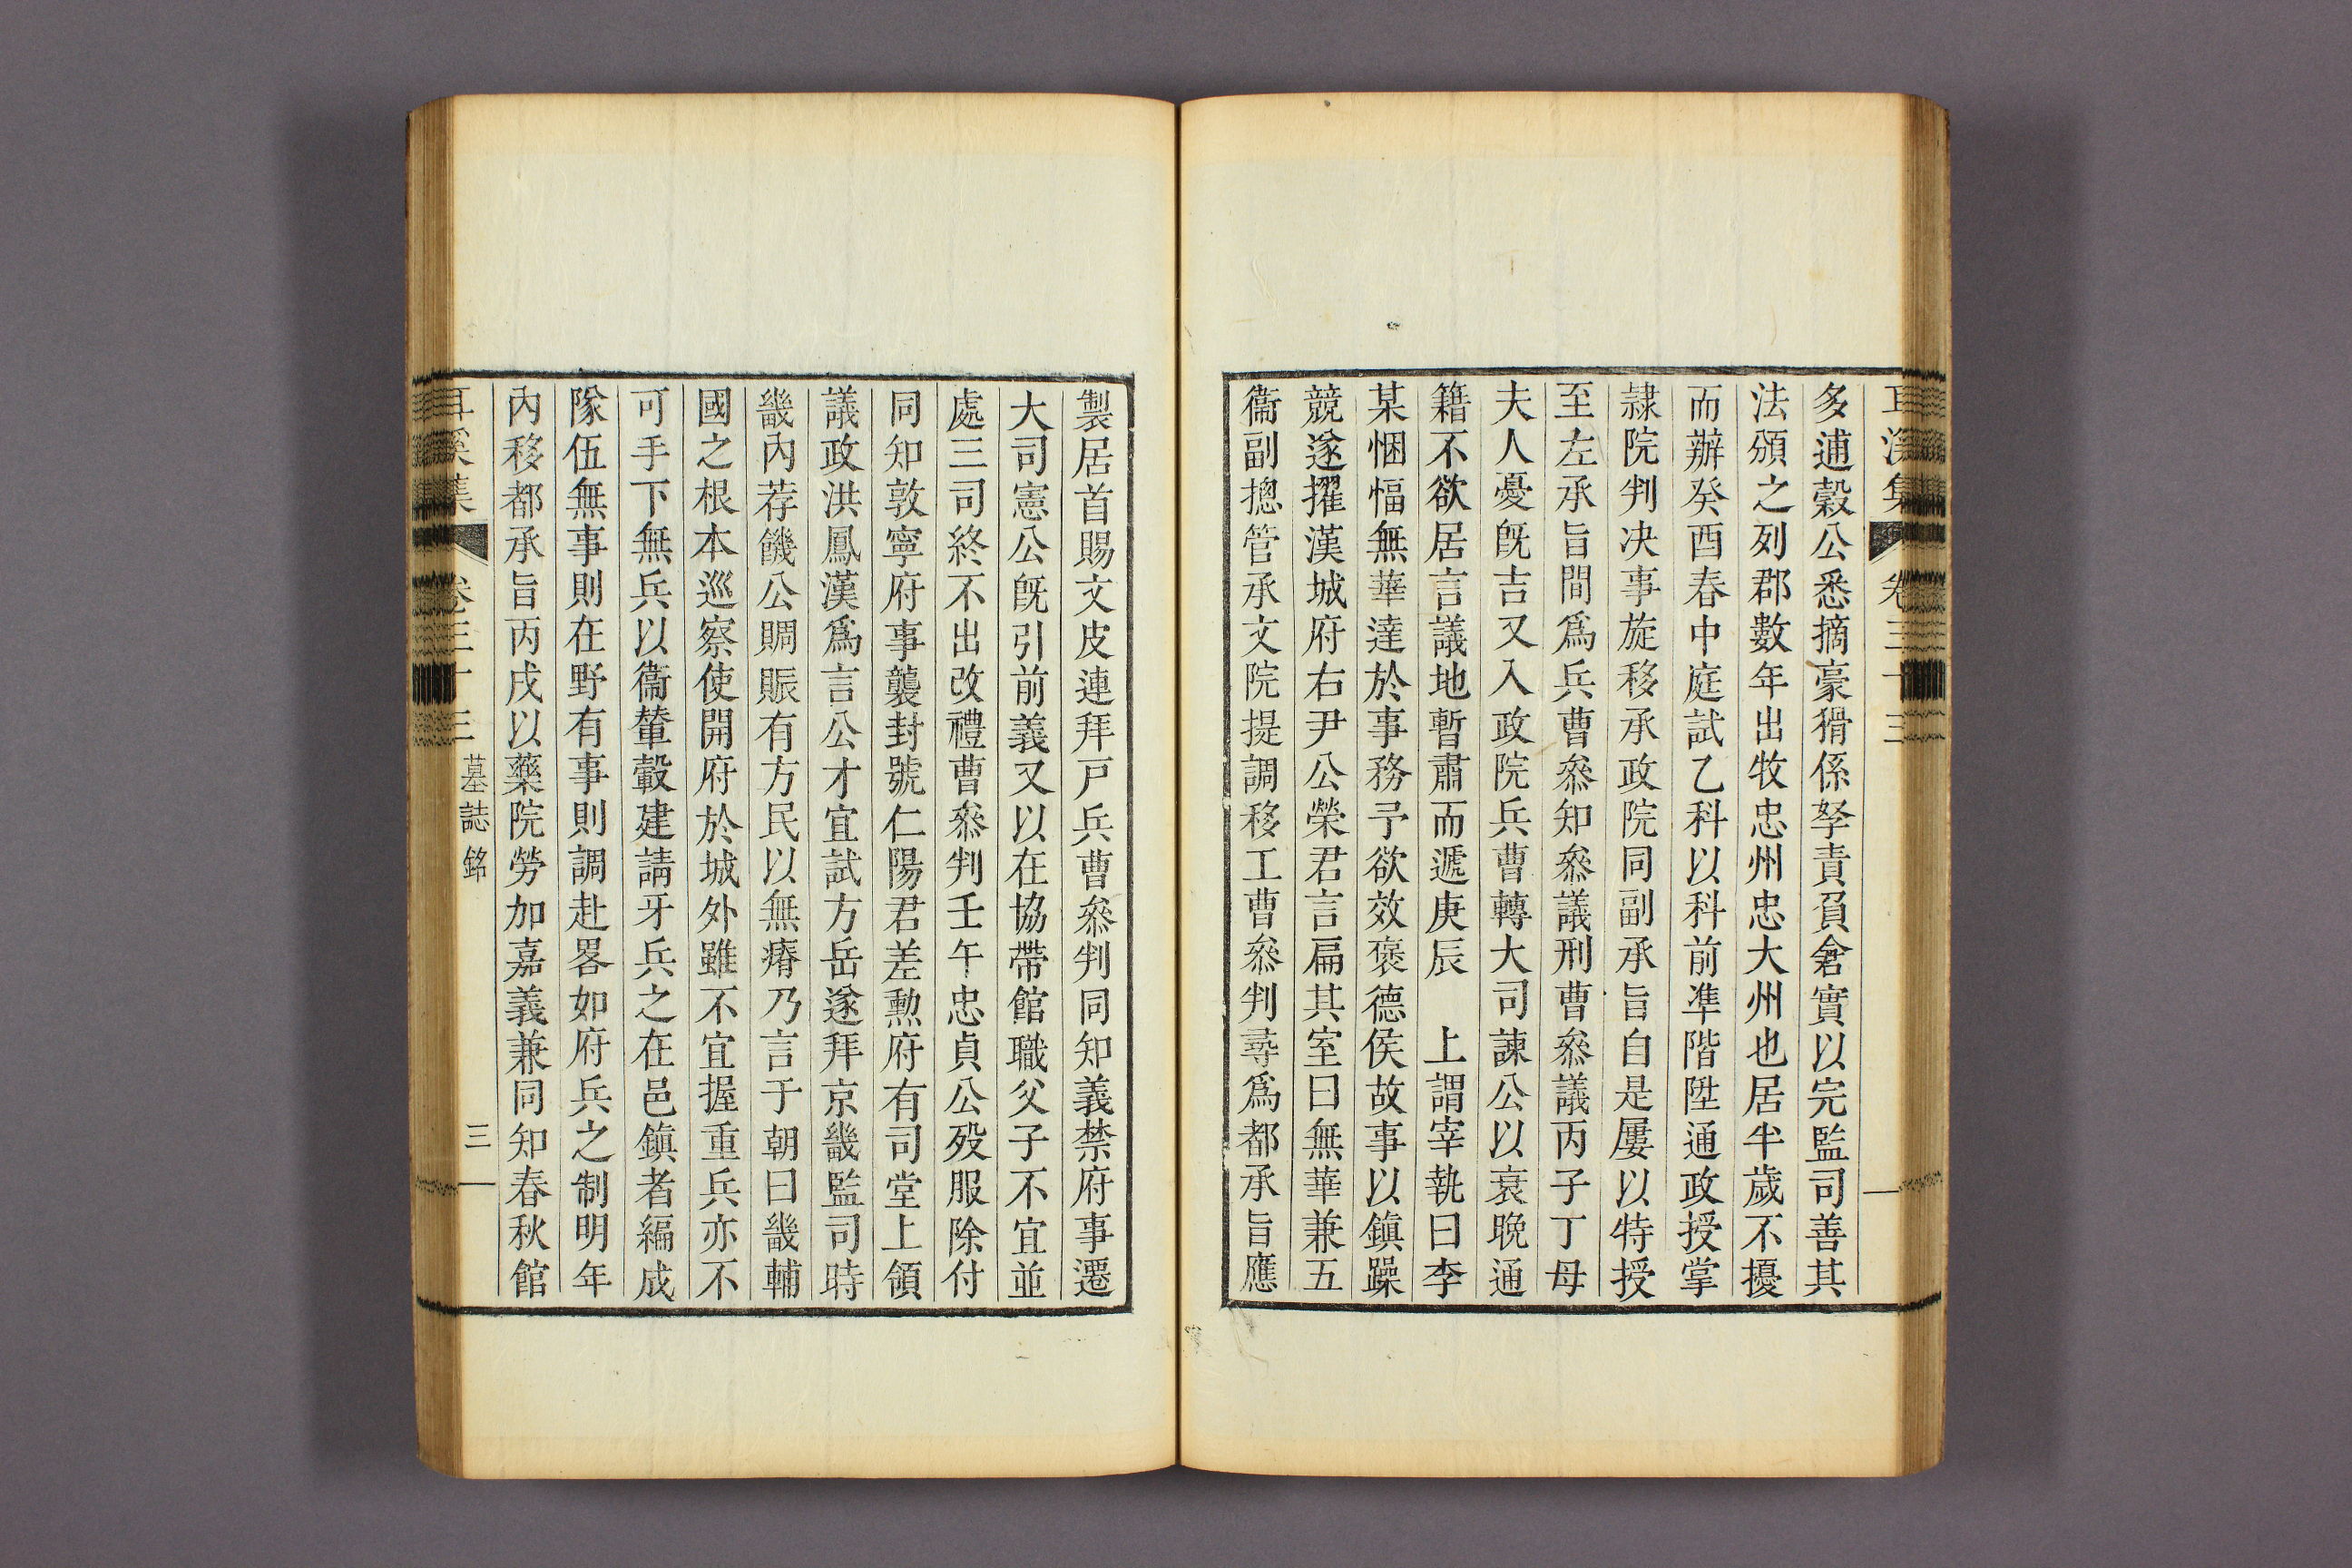 多逋穀公悉摘豪猾係孥責負倉實以完監司善其
法頒之列郡數年出牧忠州忠大州也居半歲不擾
而辦癸酉春中庭試乙科以科前準階陞通政授掌
隷院判决事旋移承政院同副承旨自是屢以特授
至左承旨間爲兵曹叅知叅議刑曹叅議丙子丁母
夫人憂旣吉又入政院兵曹轉大司諫公以衰晩通
籍不欲居言議地暫肅而遞庚辰　上謂宰執曰李
某悃愊無華達於事務予欲效褒德侯故事以鎭躁
競遂擢漢城府右尹公榮君言扁其室曰無華兼五
衞副摠管承文院提調移工曹叅判尋爲都承旨應
製居首賜文皮連拜戸兵曹叅判同知義禁府事遷
大司憲公旣引前義又以在協帶館職父子不宜並
處三司終不出改禮曹叅判壬午忠貞公歿服除付
同知敦寧府事襲封號仁陽君差勲府有司堂上領
議政洪鳳漢爲言公才宜試方岳遂拜京畿監司時
畿內荐饑公賙賑有方民以無瘠乃言于朝曰畿輔
國之根本巡察使開府於城外雖不宜握重兵亦不
可手下無兵以衞輦轂建請牙兵之在邑鎭者編成
隊伍無事則在野有事則調赴畧如府兵之制明年
內移都承旨丙戌以藥院勞加嘉義兼同知春秋館
耳溪集　卷三十三　墓誌銘　三